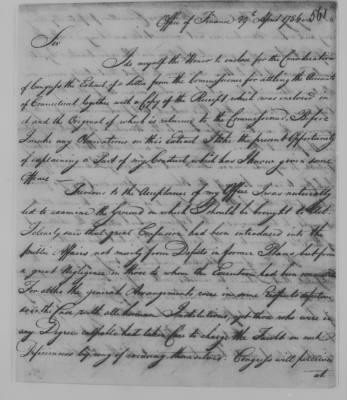 Office of Finance 29th April 1784. 561
Sir
I do myself the Honor to enclose for the Consideration
of Congress the Extract of a Letter from the Commissioner for settling the Accounts
of Connecticut together with a Copy of the Receipt which was inclosed in
it and the Original of which is returned to the Commissioner. Before
I make any Observations on this Extract I take the present Opportunity
of explaining a Part of my Conduct which has I know given some
Offence
Previous to the Acceptance of my Office I was naturally
led to examine the Ground on which I should be brought to Act.
I clearly saw that great Confusion had been introduced into the
public Affairs not merely from Defects in former Plans but from
a great Negligence in those to whom the Execution had been
For altho the general Arrangements were in some Respects defective
as is the Case with all human Institutions, yet those who were in
any Degree culpable had taken Care to charge the Fault on such
Deficiencies by way of excusing themselves. Congress will perceive
at